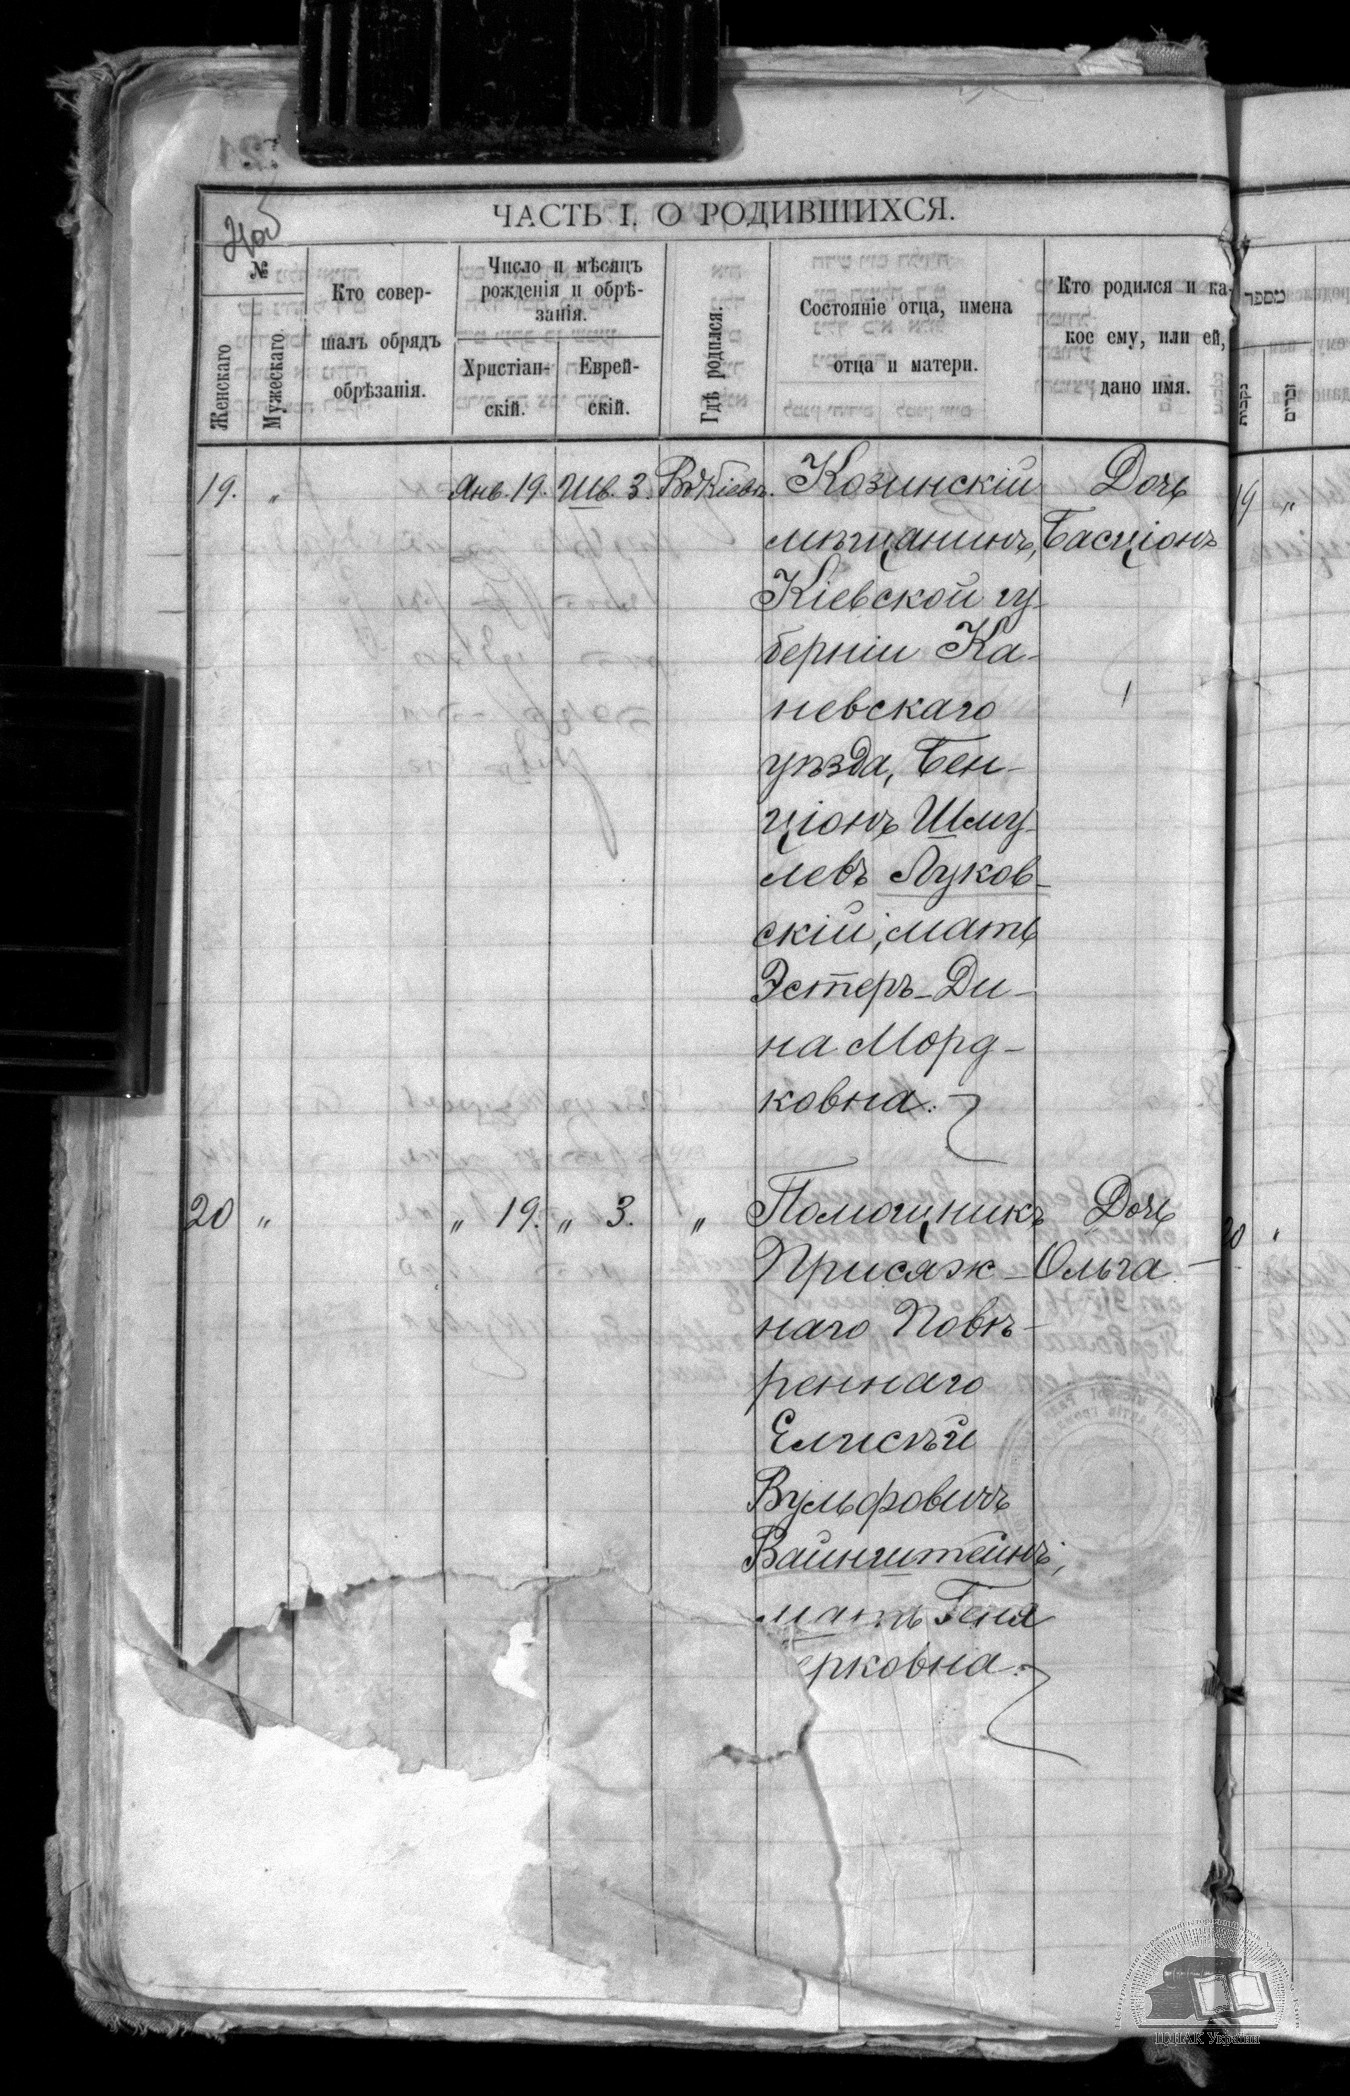 ЧАСТЬ I. О РОДИВШИХСЯ.
№
Женскаго
Мужескаго
Кто совер-
шалъ обрядъ
обрѣзанія.
Число и мѣсяцъ
рожденія и обрѣ-
занія.
Христіан-
скій.
Еврей-
скій.
Гдѣ родился.
Состояніе отца, имена
отца и матери.
Кто родился и ка-
кое ему, или ей,
дано имя.
מספר
נקבות
זכרים
19. " Янв. 19. Шв. 3. Въ Кіевѣ. Козинскій Дочь
мѣщанинъ, Басціонъ
Кіевской гу-
берніи Ка-
невскаго
уѣзда, Бен-
ціонъ Шму-
левъ Луков-
скій, мать
Эстеръ-Ди-
на Морд-
ковна.
20 " " 19. " 3. " Помощникъ Дочь
Присяж- Ольга
наго Повѣ-
реннаго
Елисѣй
Вульфовичъ
Вайнштейнъ,
мать Геня
ерковна.
19 "
20 "
ЦДІАК України